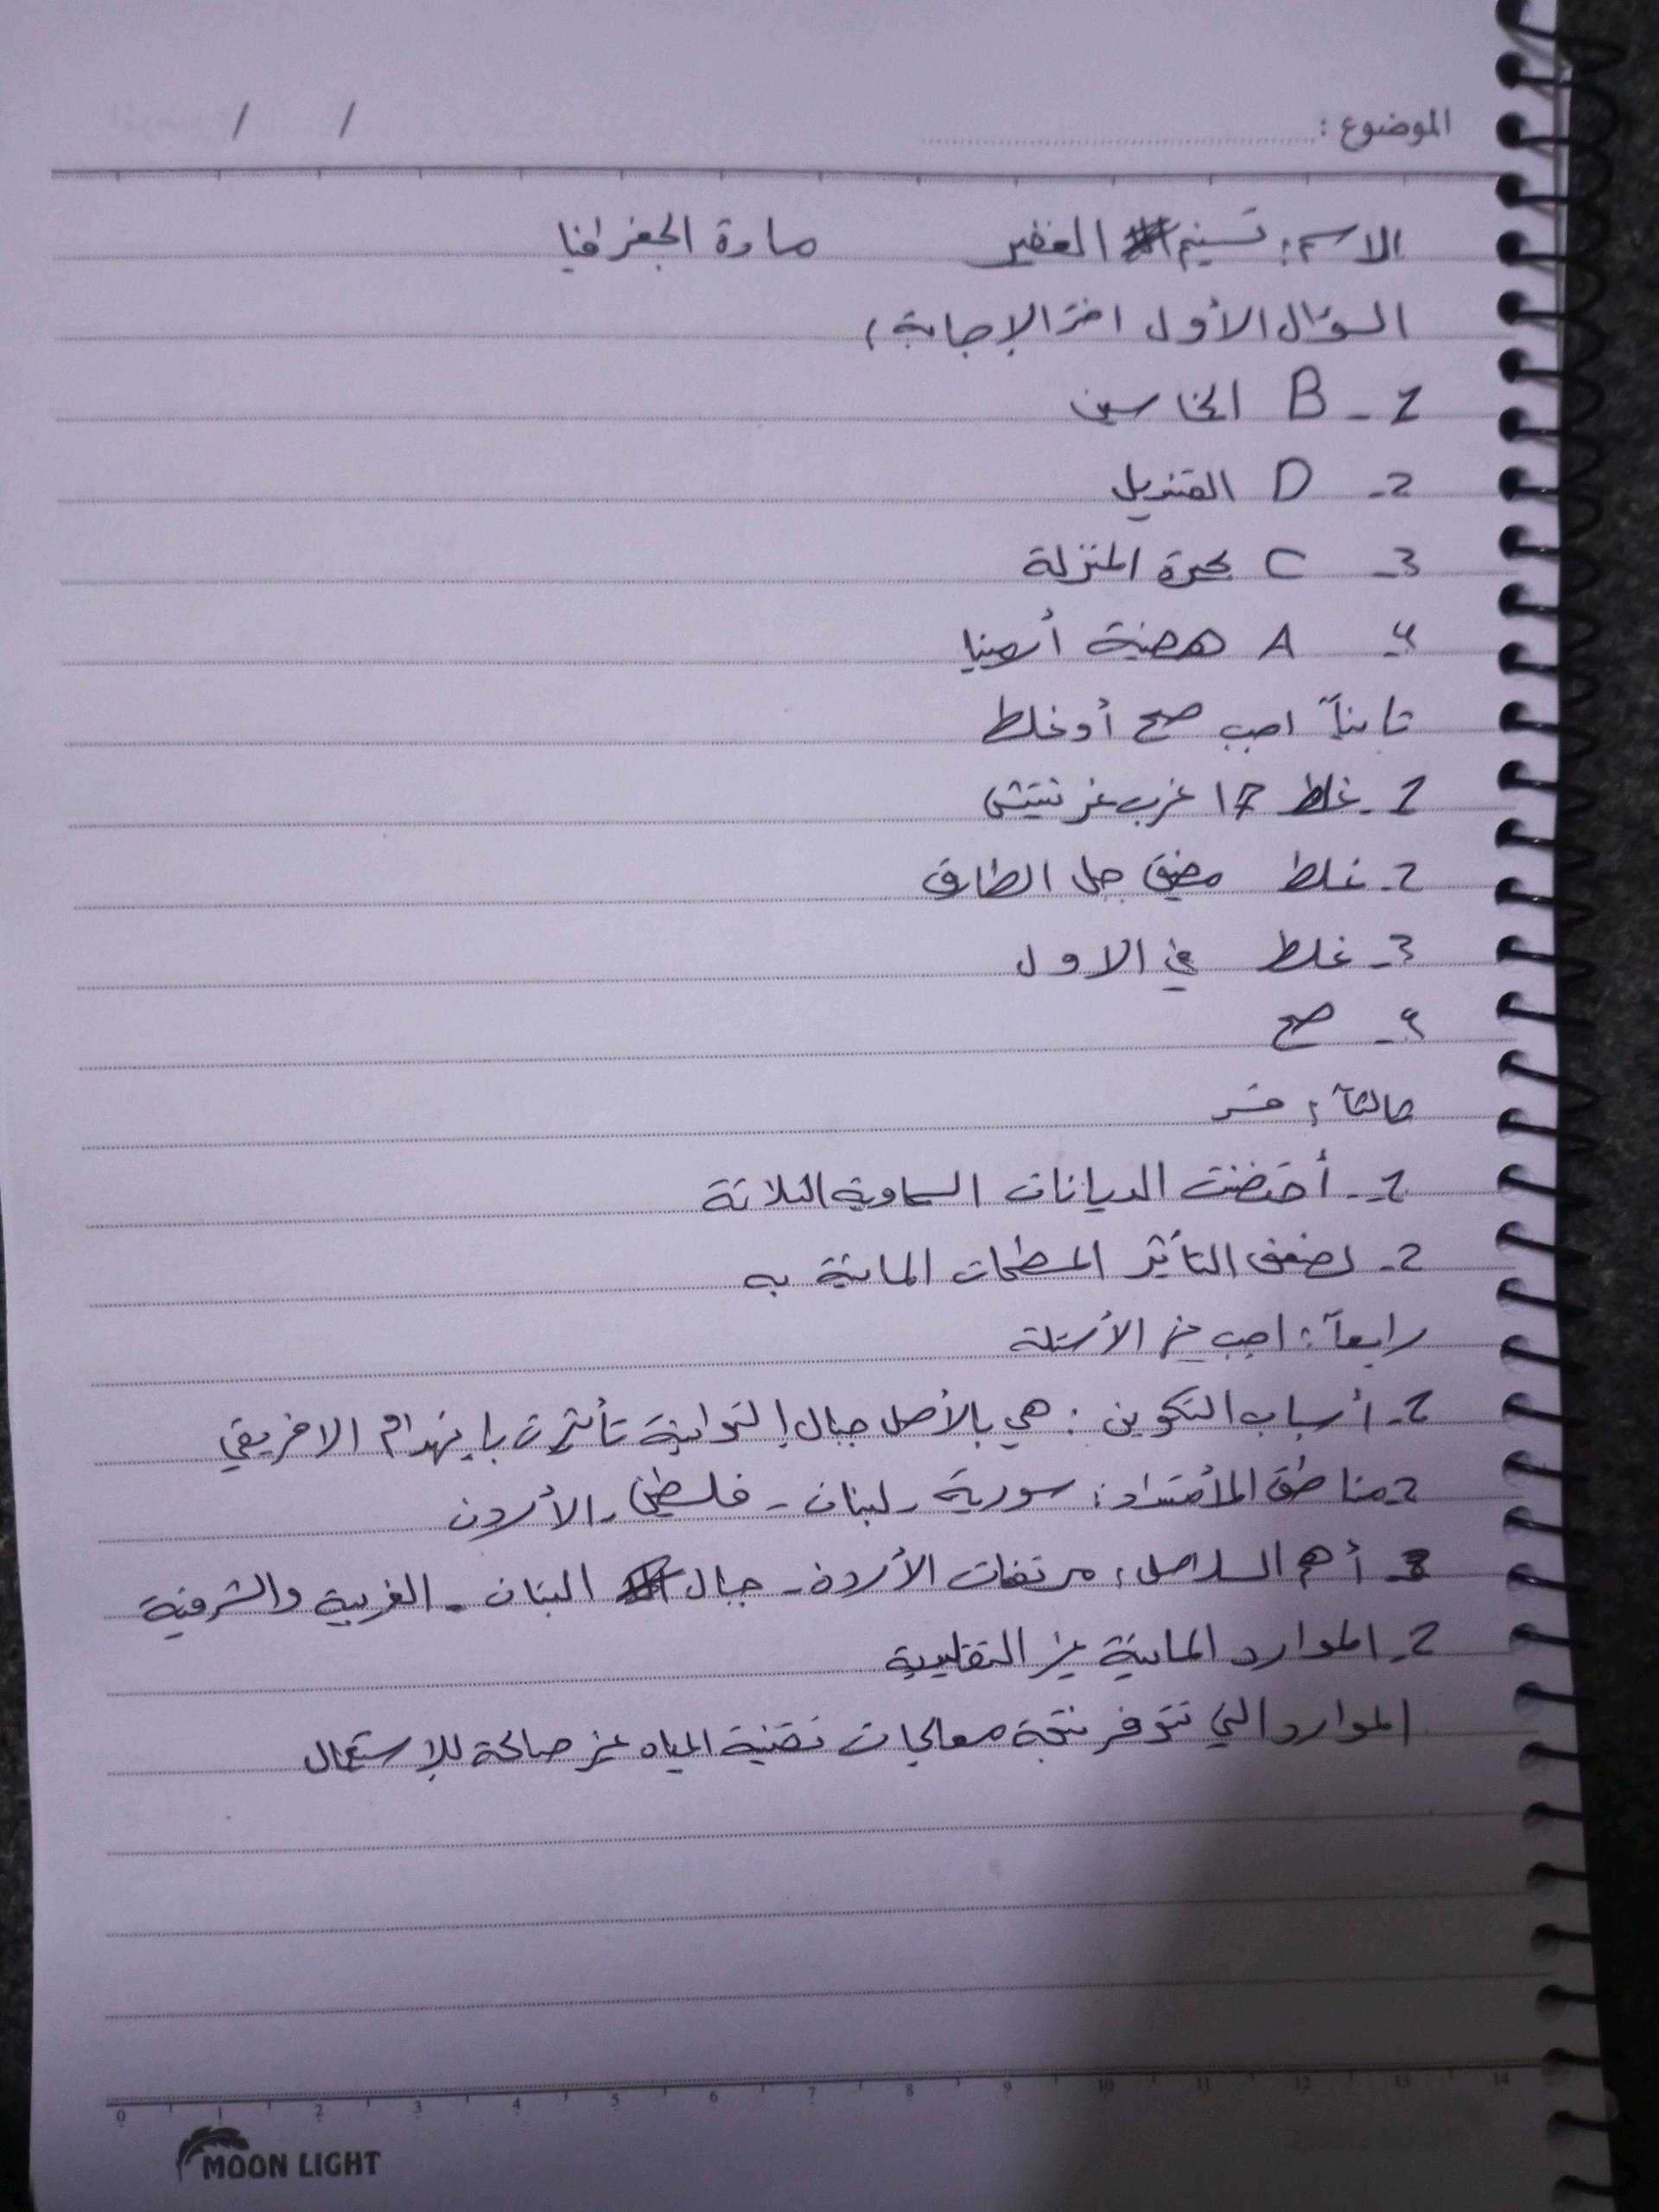 الموضوع :
/ /
الاسم: تسنيم الغفير مادة الجغرافيا
السؤال الأول اختر الإجابة،
1- B الخماسين
2- D القنديل
3- C بحرة المنزلة
4- A هضبة أرمينيا
ثانياً اجب صح أو غلط
1- غلط 17 غرب غرينتش
2- غلط مضيق جبل الطارق
3- غلط في الاول
4- صح
ثالثاً: فسر
1- أحتضنت الديانات السماوية الثلاثة
2- لضعف التأثير المسطحات المائية به
رابعاً: اجب عن الأسئلة
1- أسباب التكوين : هي بالأصل جبال إلتوائية تأثرت بإنهدام الافريقي
2- مناطق الأمتداد: سورية - لبنان - فلسطين - الأردن
3- أهم السلاسل: مرتفعات الأردن - جبال البنان - الغربية والشرقية
2- الموارد المائية غير التقليدية
الموارد التي تتوفر نتيجة معالجات تقنية المياه غير صالحة للإستعمال
0 1 2 3 4 5 6 7 8 9 10 11 12 13 14
MOON LIGHT